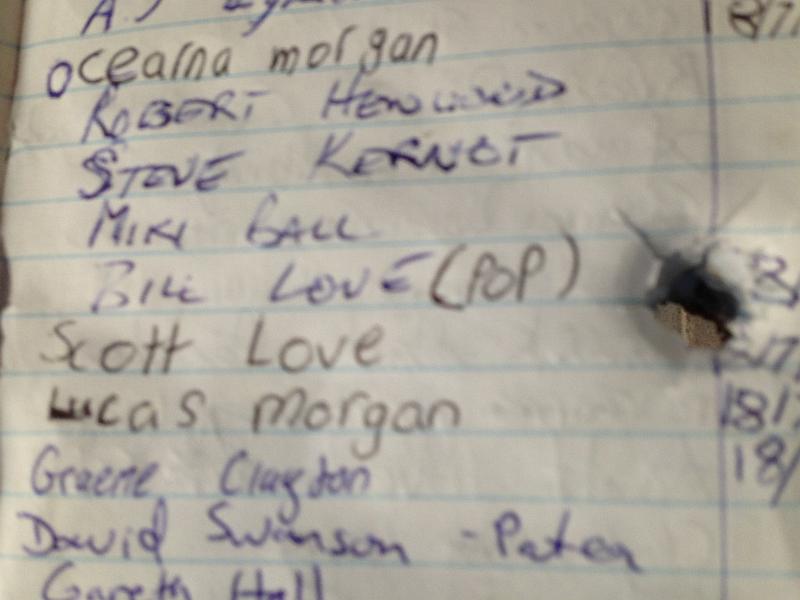 A.J
Ocearna morgan
ROBERT HENWOOD
STEVE KERNOT
MIKI BALL
BILL LOVE (POP)
Scott Love
Lucas Morgan
18/
Graeme Clayton
18/
David Swanson - Patea
Gareth Hall